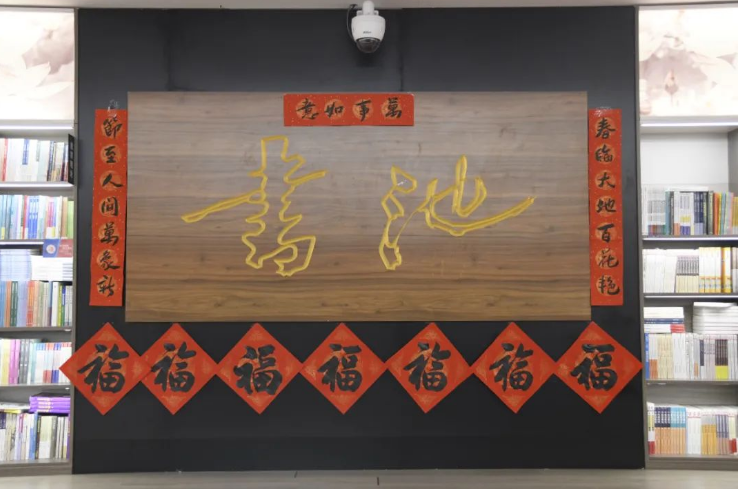 萬事如意
春臨大地百花艷
節至人間萬象新
書池
福 福 福 福 福 福 福